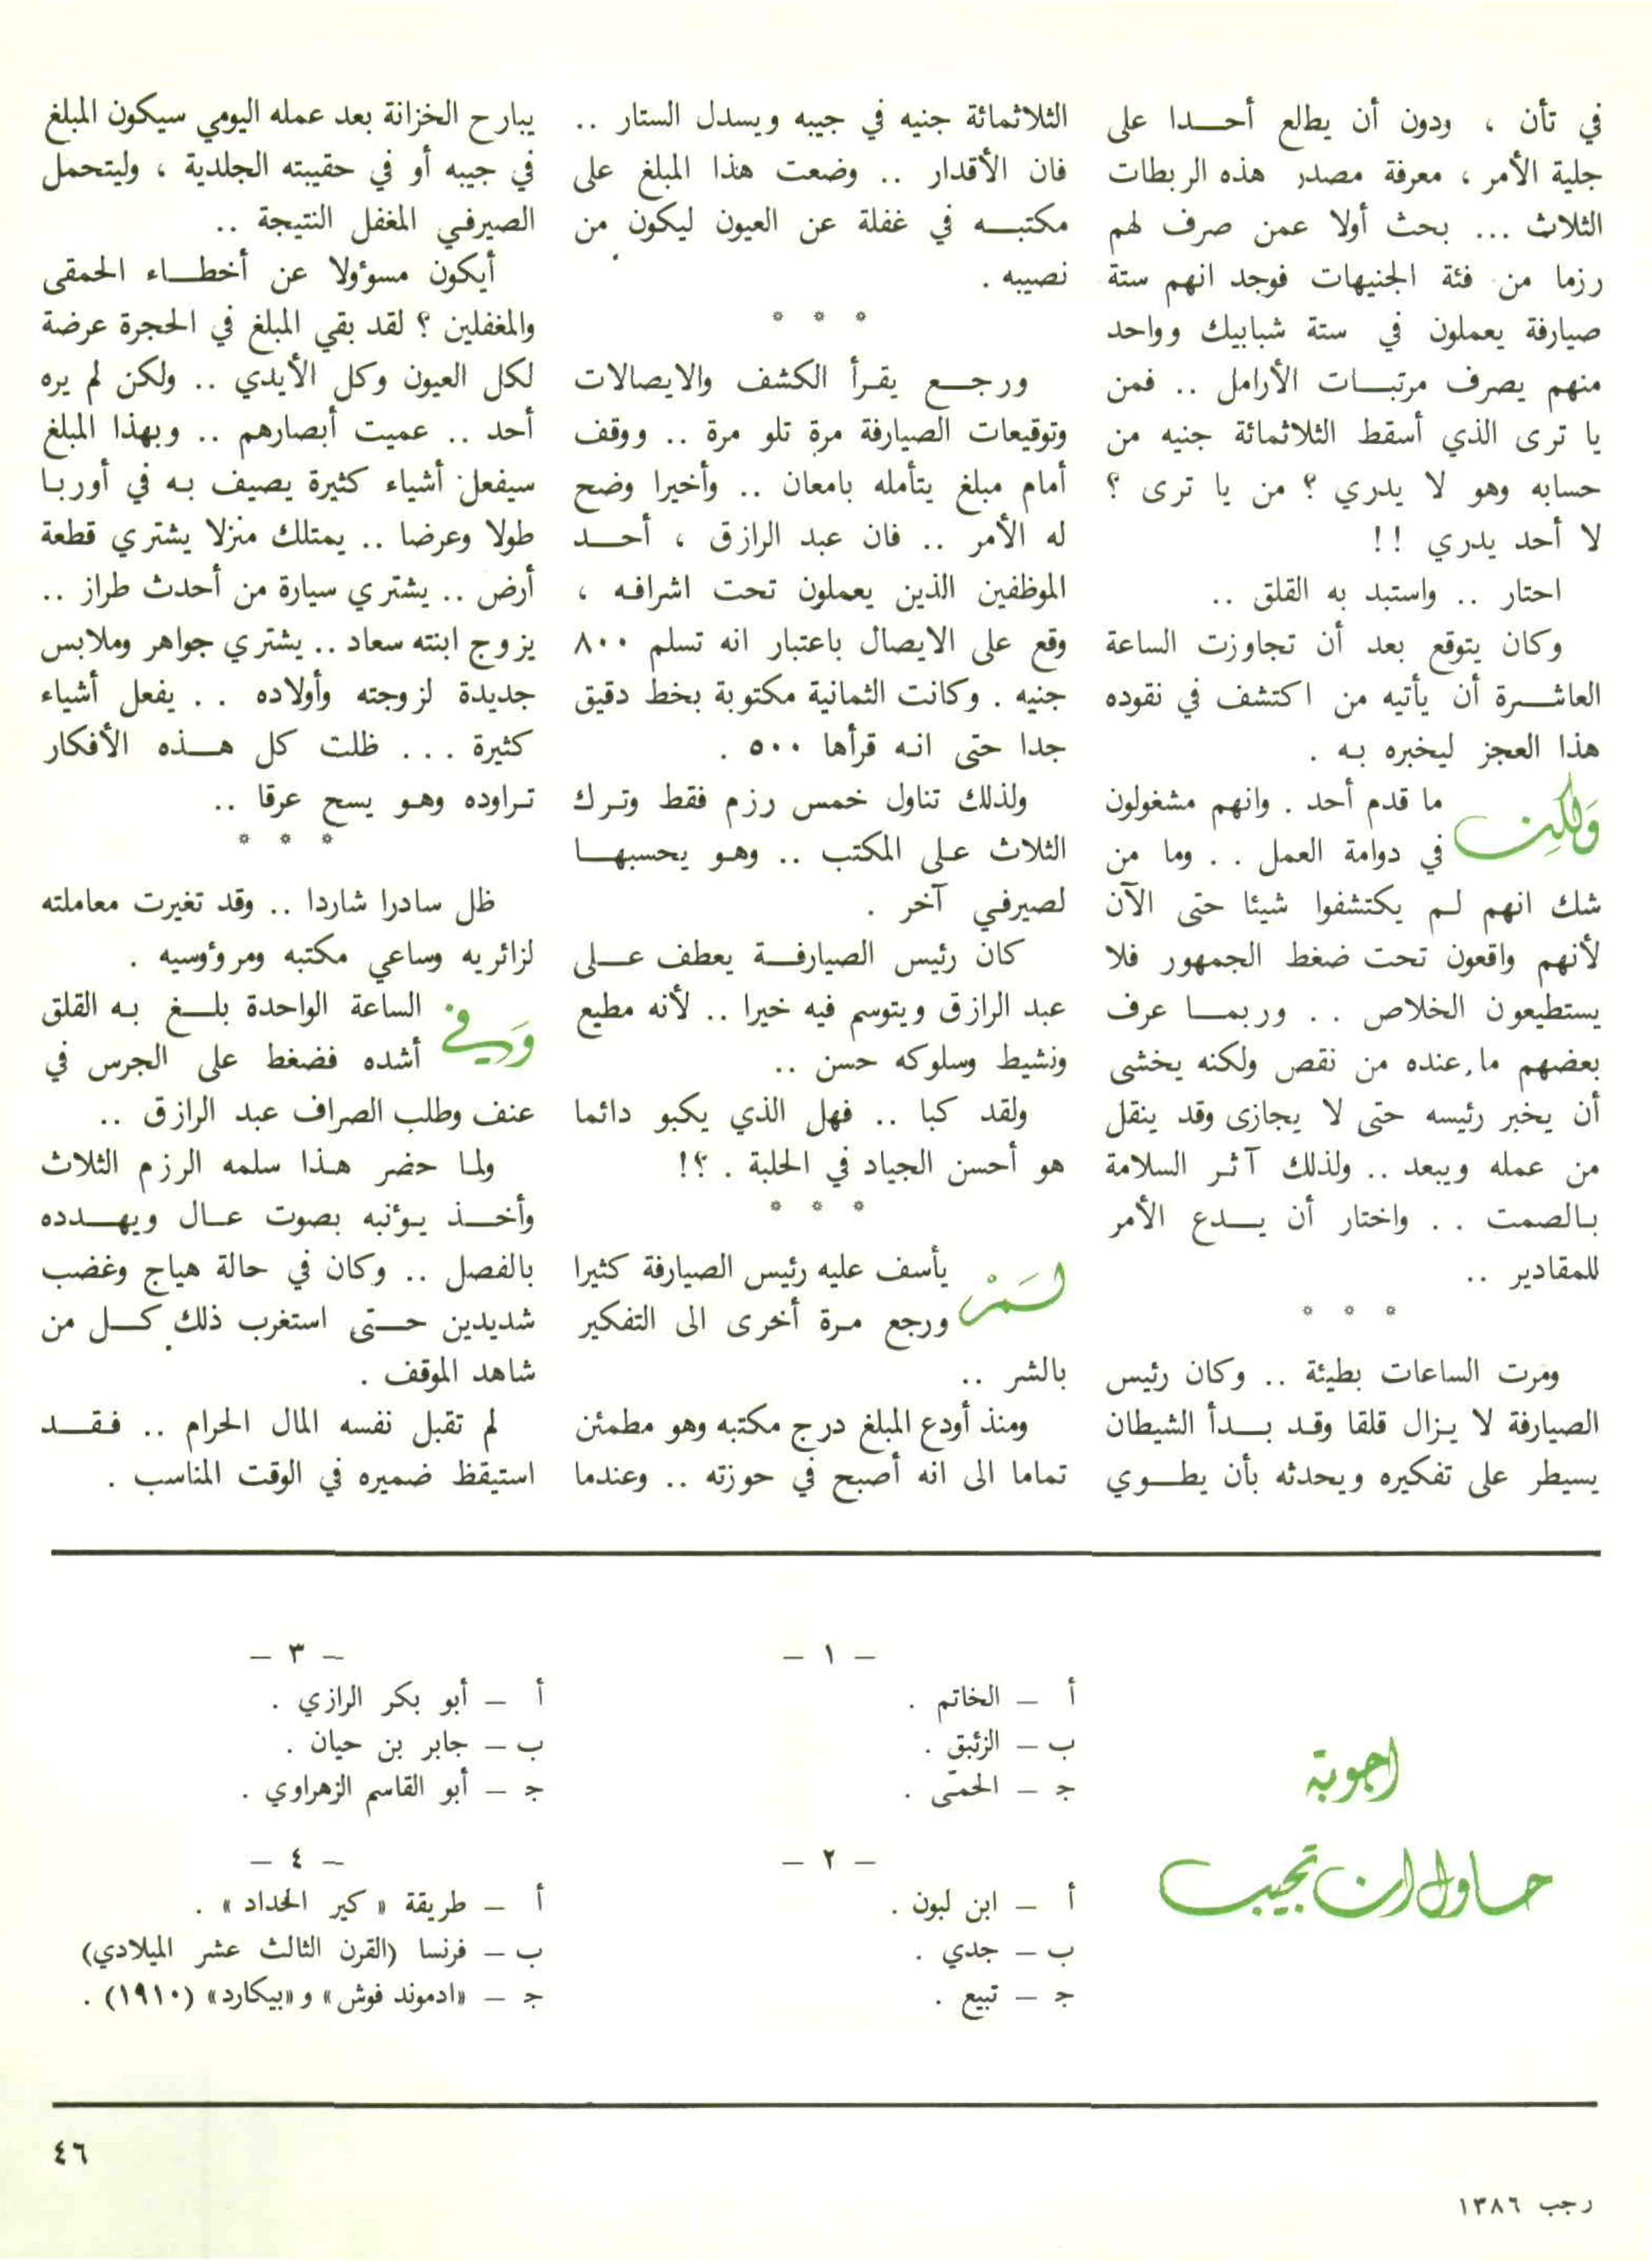 في تأن ، ودون أن يطالع أحدا على
جلية الأمر ، معرفة مصدر هذه الربطات
الثلاث ... بحث أولا عمن صرف لهم
رزما من فئة الجنيهات فوجد انهم ستة
صيارفة يعملون في ستة شبابيك وواحد
منهم يصرف مرتبات الأرامل .. فمن
يا ترى الذي أسقط الثلاثمائة جنيه من
حسابه وهو لا يدري ؟ من يا ترى ؟
لا أحد يدري !!
احتار .. واستبد به القلق ..
وكان يتوقع بعد أن تجاوزت الساعة
العاشرة أن يأتيه من اكتشف في نقوده
هذا العجز ليخبره به .
وَلكِن ما قدم أحد . وانهم مشغولون
في دوامة العمل . . وما من
شك انهم لم يكتشفوا شيئا حتى الآن
لأنهم واقعون تحت ضغط الجمهور فلا
يستطيعون الخلاص . . وربما عرف
بعضهم ما عنده من نقص ولكنه يخشى
أن يخبر رئيسه حتى لا يجازى وقد ينقل
من عمله ويبعد .. ولذلك آثر السلامة
بالصمت . . واختار أن يدع الأمر
للمقادير ..
* * *
ومرت الساعات بطيئة .. وكان رئيس
الصيارفة لا يزال قلقا وقد بدأ الشيطان
يسيطر على تفكيره ويحدثه بأن يطوي
الثلاثمائة جنيه في جيبه ويسدل الستار ..
فان الأقدار .. وضعت هذا المبلغ على
مكتبه في غفلة عن العيون ليكون من
نصيبه .
* * *
ورجع يقرأ الكشف والايصالات
وتوقيعات الصيارفة مرة تلو مرة .. ووقف
أمام مبلغ يتأمله بامعان .. وأخيرا وضح
له الأمر .. فان عبد الرازق ، أحد
الموظفين الذين يعملون تحت اشرافه ،
وقع على الايصال باعتبار انه تسلم ٨٠٠
جنيه . وكانت الثمانية مكتوبة بخط دقيق
جدا حتى انه قرأها ٥٠٠ .
ولذلك تناول خمس رزم فقط وترك
الثلاث على المكتب .. وهو يحسبها
لصيرفي آخر .
كان رئيس الصيارفة يعطف على
عبد الرازق ويتوسم فيه خيرا .. لأنه مطيع
ونشيط وسلوكه حسن ..
ولقد كبا .. فهل الذي يكبو دائما
هو أحسن الجياد في الحلبة . ؟!
* * *
لَمْ يأسف عليه رئيس الصيارفة كثيرا
ورجع مرة أخرى الى التفكير
بالشر ..
ومنذ أودع المبلغ درج مكتبه وهو مطمئن
تماما الى انه أصبح في حوزته .. وعندما
يبارح الخزانة بعد عمله اليومي سيكون المبلغ
في جيبه أو في حقيبته الجلدية ، وليتحمل
الصيرفي المغفل النتيجة ..
أيكون مسؤولا عن أخطاء الحمقى
والمغفلين ؟ لقد بقي المبلغ في الحجرة عرضة
لكل العيون وكل الأيدي .. ولكن لم يره
أحد .. عميت أبصارهم .. وبهذا المبلغ
سيفعل أشياء كثيرة يصيف به في أوربا
طولا وعرضا .. يمتلك منزلا يشتري قطعة
أرض .. يشتري سيارة من أحدث طراز ..
يزوج ابنته سعاد .. يشتري جواهر وملابس
جديدة لزوجته وأولاده . . يفعل أشياء
كثيرة . . . ظلت كل هذه الأفكار
تراوده وهو يسح عرقا ..
* * *
ظل سادرا شاردا .. وقد تغيرت معاملته
لزائريه وساعي مكتبه ومرؤوسيه .
وَفي الساعة الواحدة بلغ به القلق
أشده فضغط على الجرس في
عنف وطلب الصراف عبد الرازق ..
ولما حضر هذا سلمه الرزم الثلاث
وأخذ يؤنبه بصوت عال ويهدده
بالفصل .. وكان في حالة هياج وغضب
شديدين حتى استغرب ذلك كل من
شاهد الموقف .
لم تقبل نفسه المال الحرام .. فقد
استيقظ ضميره في الوقت المناسب .
اجوبة
حاول ان تجيب
– ١ –
أ – الخاتم .
ب – الزئبق .
ج – الحمّى .
– ٢ –
أ – ابن لبون .
ب – جدي .
ج – تبيع .
– ٣ –
أ – أبو بكر الرازي .
ب – جابر بن حيان .
ج – أبو القاسم الزهراوي .
– ٤ –
أ – طريقة « كير الحداد » .
ب – فرنسا (القرن الثالث عشر الميلادي)
ج – «ادموند فوش» و«بيكارد» (١٩١٠) .
٤٦
رجب ١٣٨٦